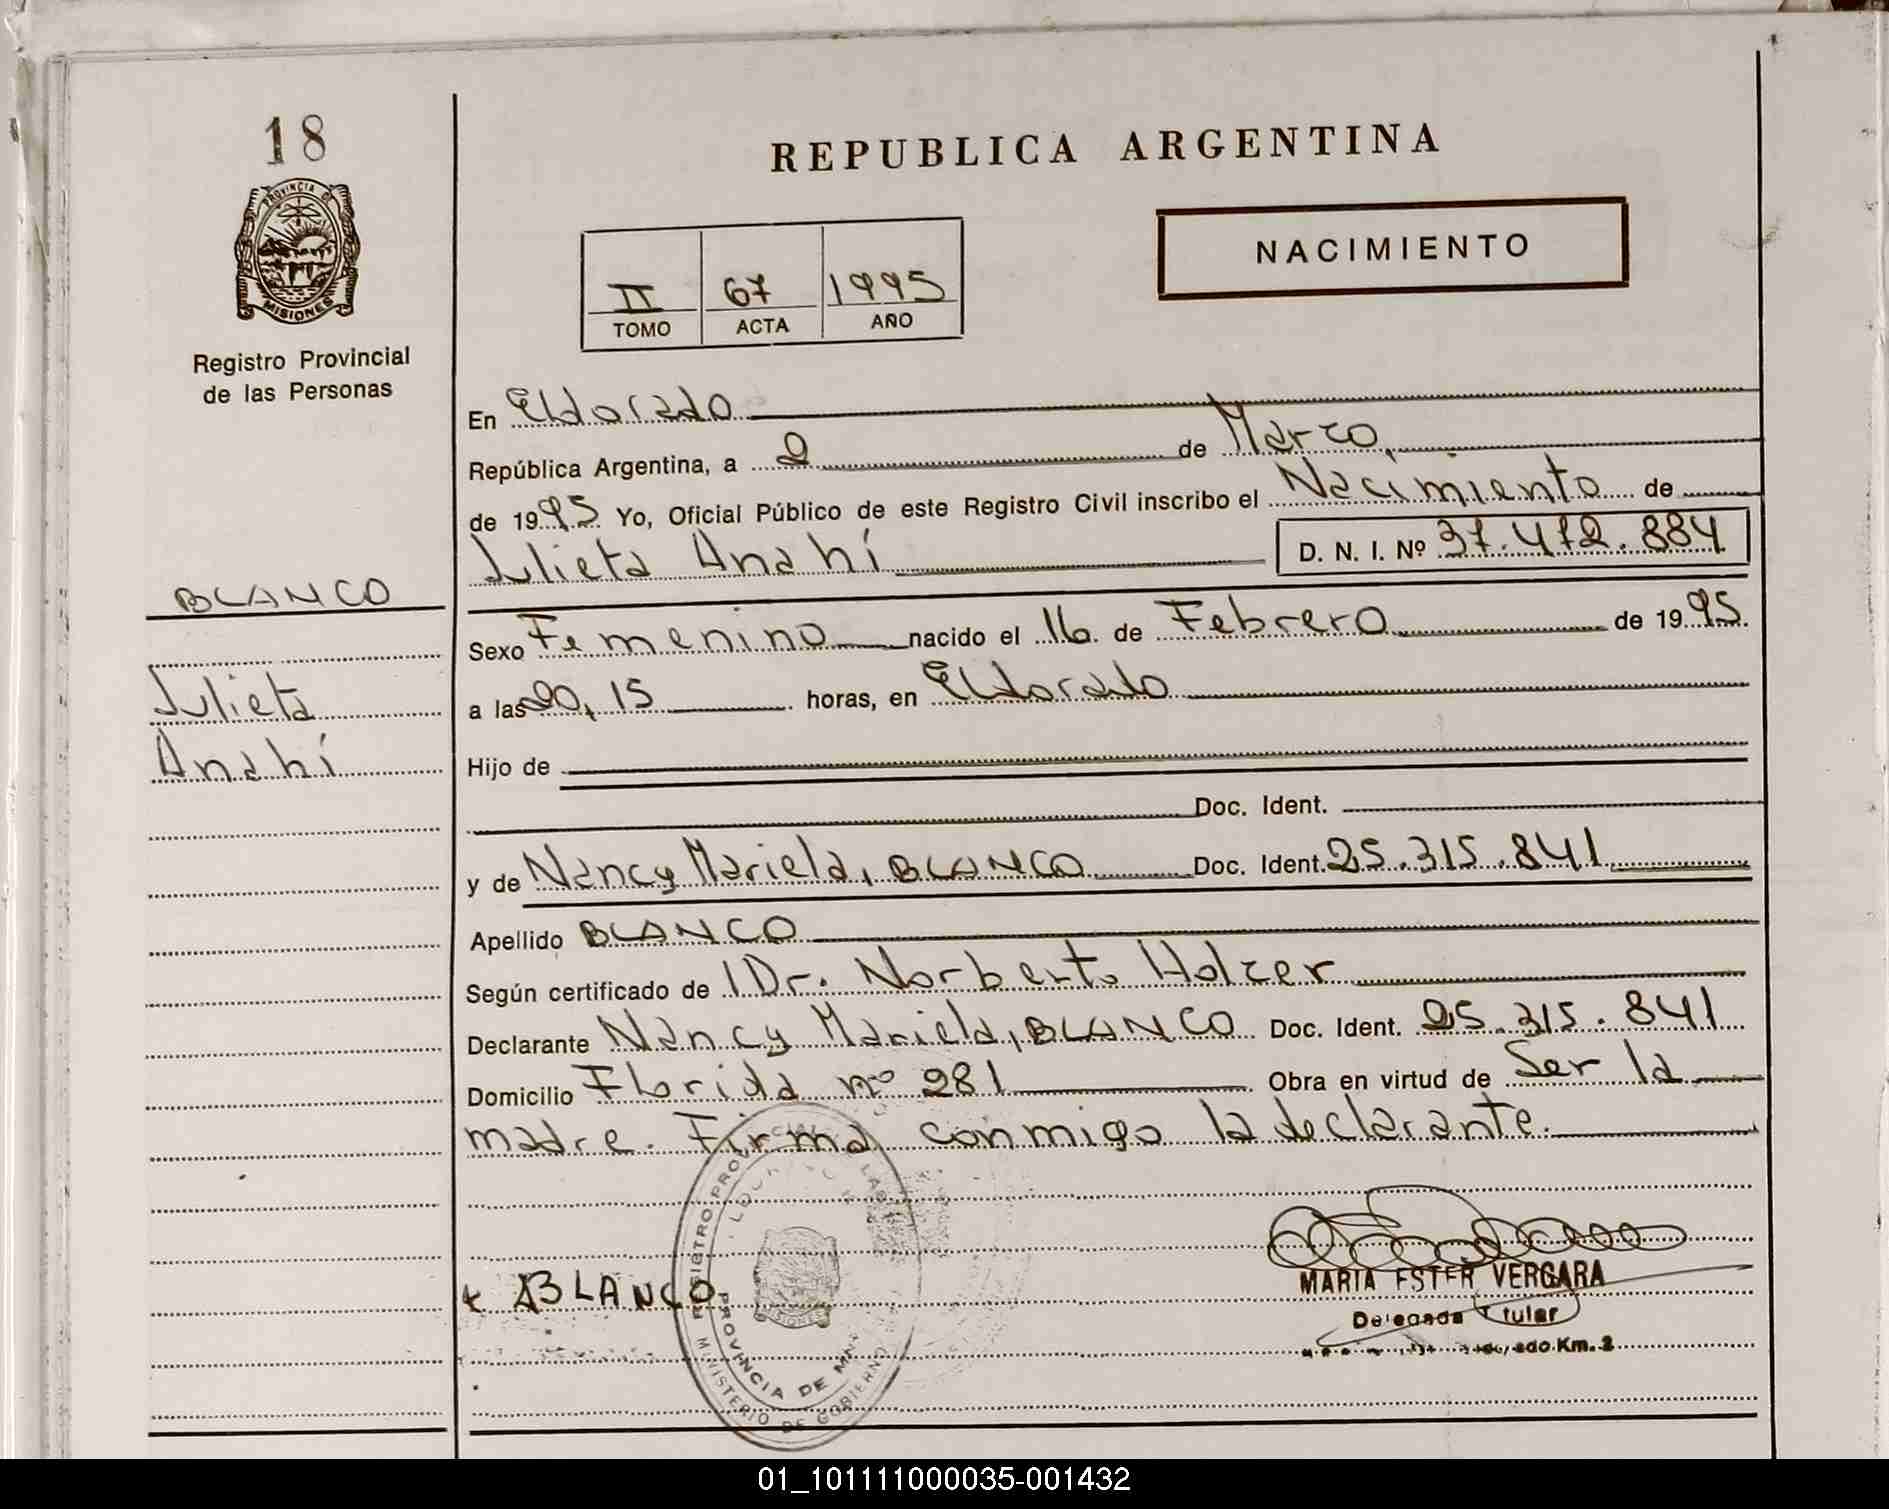 18
PROVINCIA DE
MISIONES
Registro Provincial
de las Personas
BLANCO
Julieta
Anahí
REPUBLICA ARGENTINA
NACIMIENTO
II 67 1995
TOMO ACTA AÑO
En Eldorado
República Argentina, a 2 de Marzo,
de 1995 Yo, Oficial Público de este Registro Civil inscribo el Nacimiento de
Julieta Anahí D. N. I. Nº 37.472.884
Sexo Femenino nacido el 16 de Febrero de 1995.
a las 20,15 horas, en Eldorado
Hijo de
Doc. Ident.
y de Nancy Mariela, BLANCO Doc. Ident. 25.315.841
Apellido BLANCO
Según certificado de Dr. Norberto Holzer
Declarante Nancy Mariela, BLANCO Doc. Ident. 25.315.841
Domicilio Florida nº 281 Obra en virtud de Ser la
madre. Firma conmigo la declarante.
BLANCO
REGISTRO PROVINCIAL DE LAS
PROVINCIA DE
MINISTERIO DE GOBIERNO
MISIONES
MARIA ESTER VERGARA
Delegada Titular
Km. 2
01_101111000035-001432